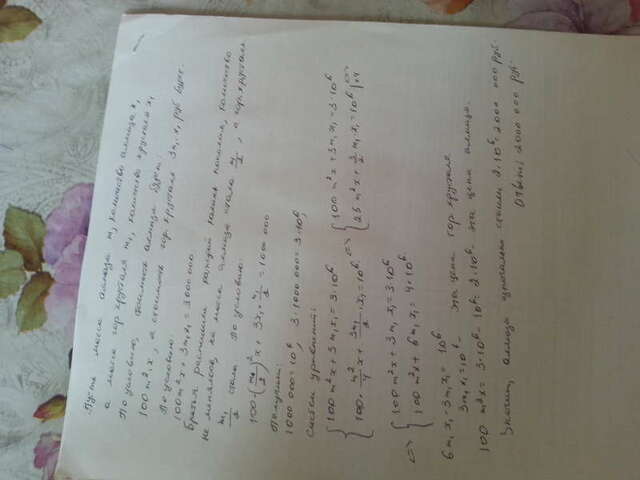 Пусть масса алмаза m, количество алмаза x,
а масса гор хрусталя m₁, количество хрусталя x₁
По условию, стоимость алмаза будет:
100m²x, а стоимость гор.хрусталя 3m₁x₁ руб будет.
По условию:
100m²x + 3m₁x₁ = 3000 000
Братья распилили каждый камень пополам, количество
не менялось, но масса алмаза стала m/2, а гор.хрусталя
m₁/2 стала. По условию:
100·(m/2)²x + 3x₁·m₁/2 = 1000 000
Получили:
1000 000 = 10⁶, 3·1000 000 = 3·10⁶
Систем уравнений:
{100m²x + 3m₁x₁ = 3·10⁶
{100·m²/4 x + 3m₁/2 x₁ = 10⁶ <=> {100m²x + 3m₁x₁ = 3·10⁶
{25m²x + 3/2 m₁x₁ = 10⁶ |·4 <=>
<=> {100m²x + 3m₁x₁ = 3·10⁶
{100m²x + 6m₁x₁ = 4·10⁶
6m₁x₁ - 3m₁x₁ = 10⁶
3m₁x₁ = 10⁶ - эта цена гор хрусталя
100m²x = 3·10⁶ - 10⁶ = 2·10⁶ - эта цена алмаза.
алмаз стоили 2·10⁶ = 2000 000 руб.
Ответ: 2000 000 руб.